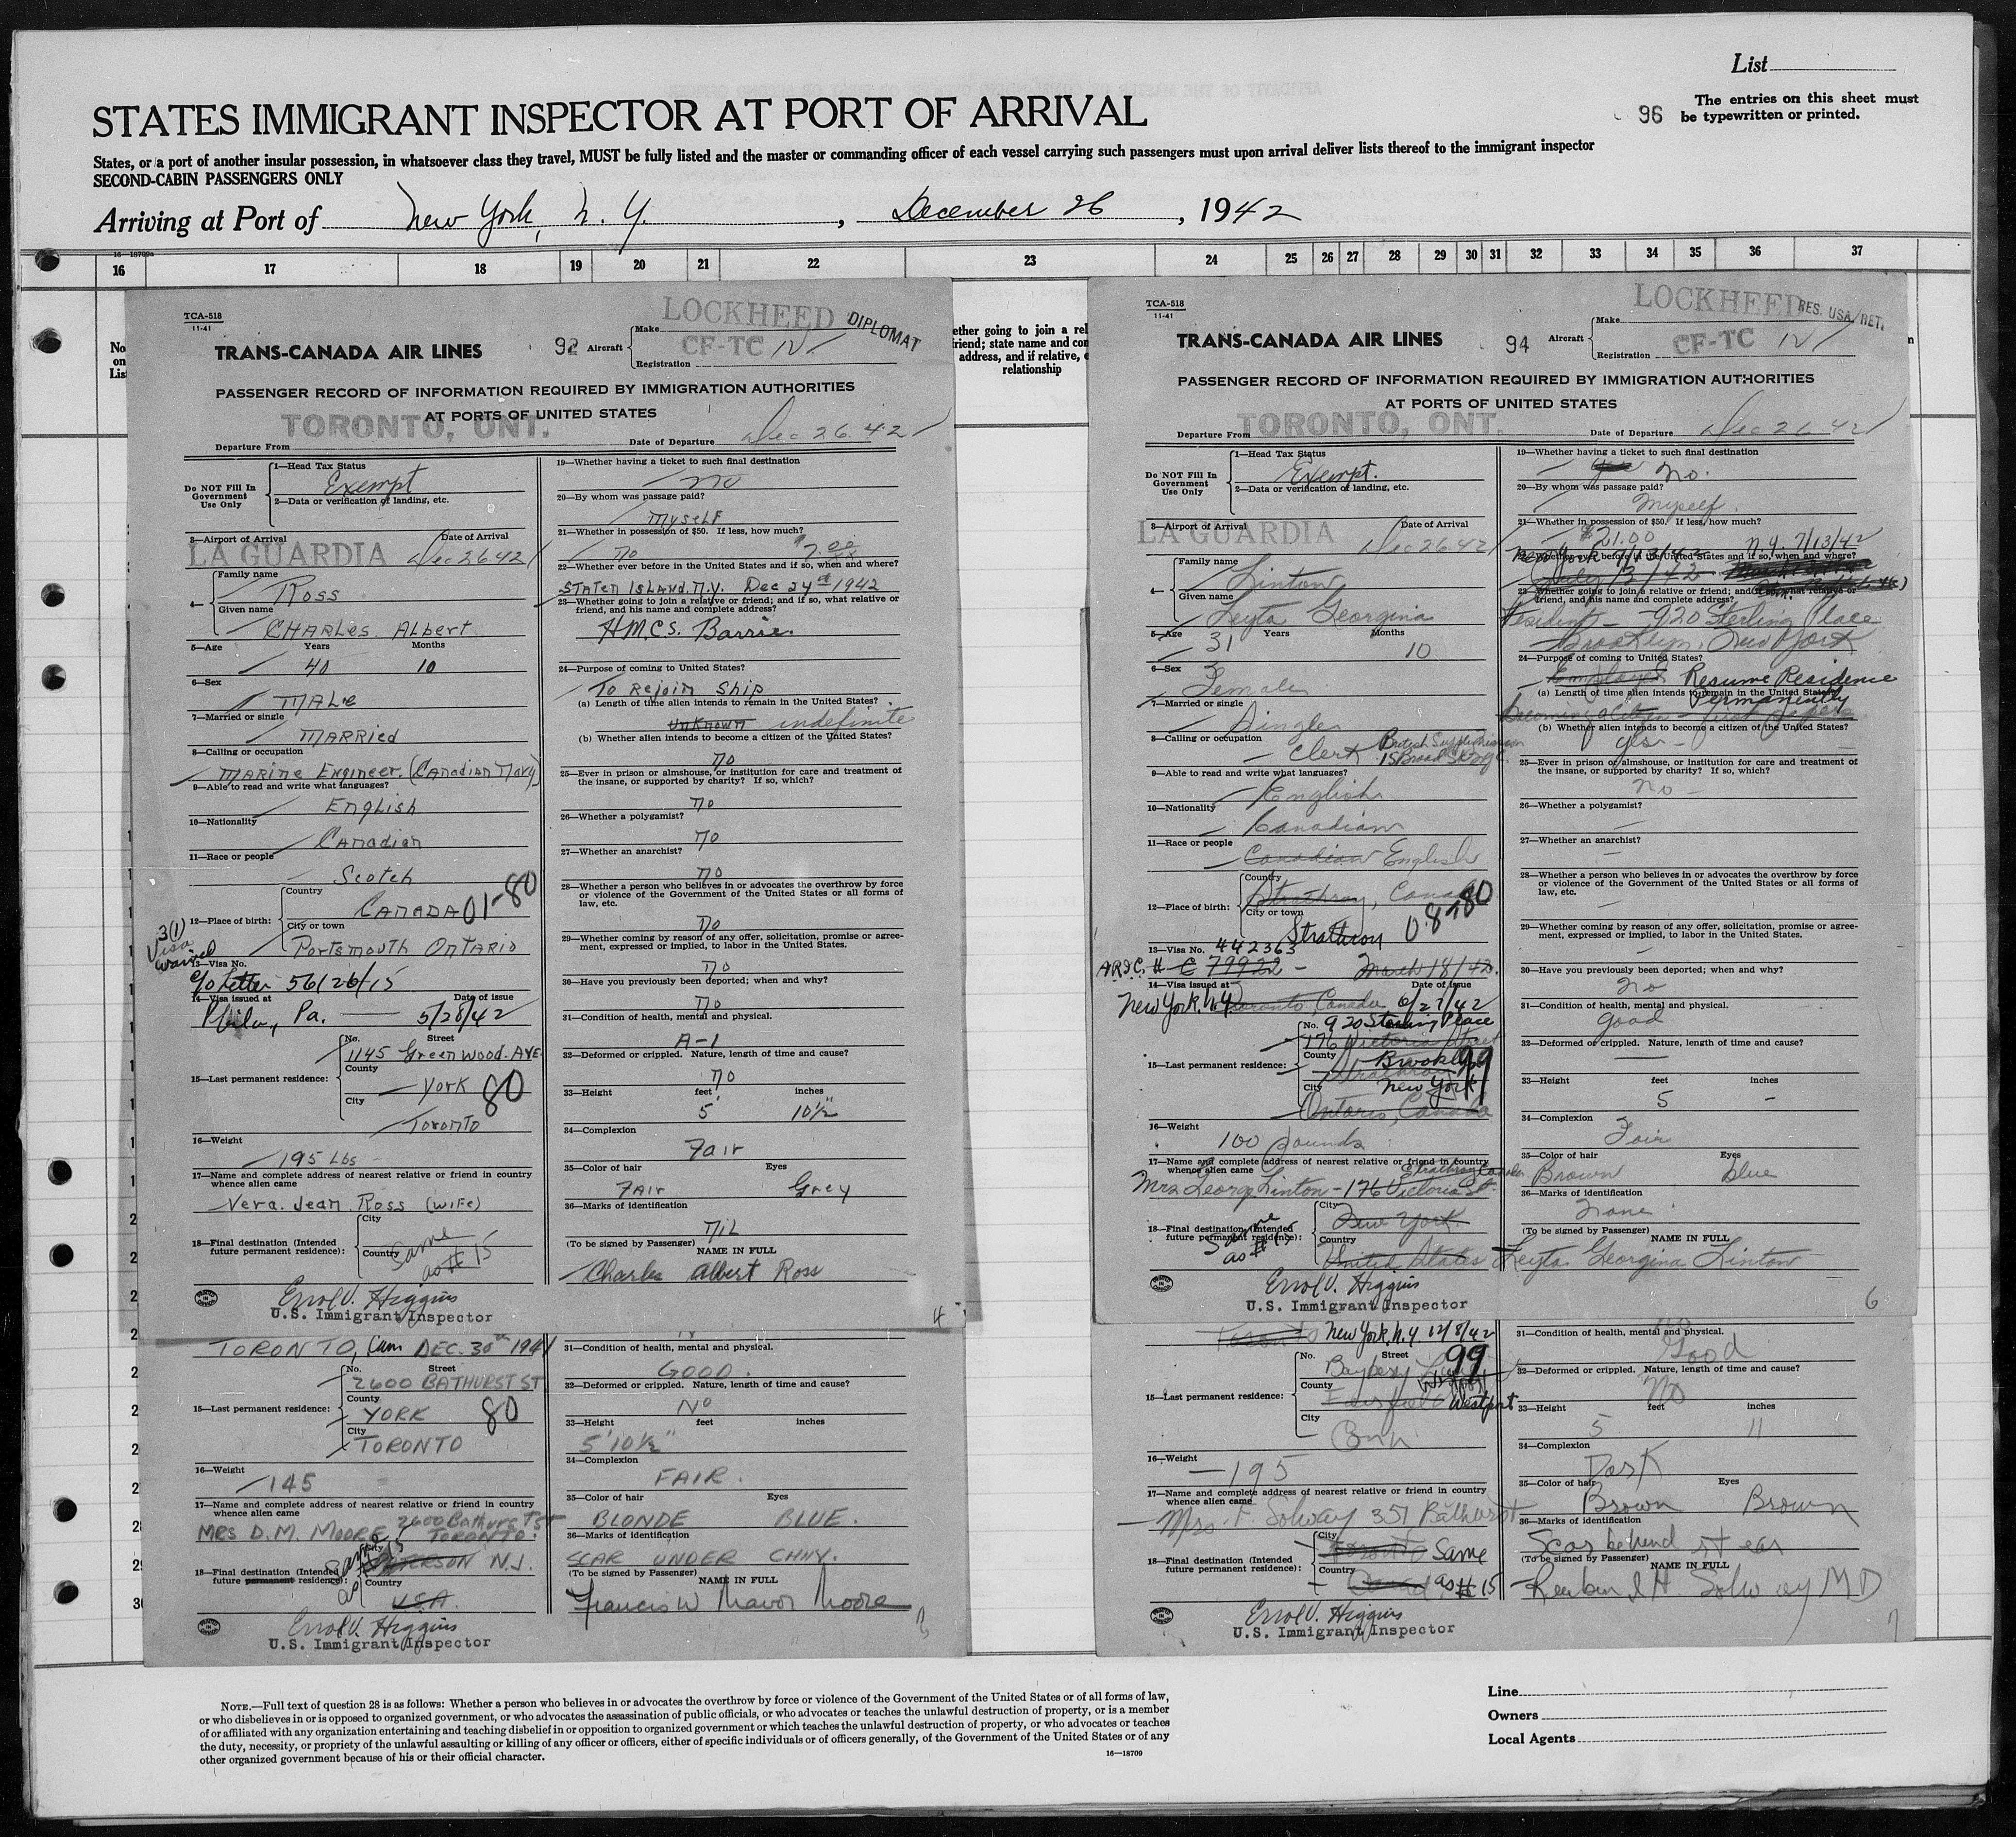 List
96
The entries on this sheet must
be typewritten or printed.
STATES IMMIGRANT INSPECTOR AT PORT OF ARRIVAL
States, or a port of another insular possession, in whatsoever class they travel, MUST be fully listed and the master or commanding officer of each vessel carrying such passengers must upon arrival deliver lists thereof to the immigrant inspector
SECOND-CABIN PASSENGERS ONLY
Arriving at Port of New York, N. Y. , December 26 , 1942
16—18709a
16 17 18 19 20 21 22 23 24 25 26 27 28 29 30 31 32 33 34 35 36 37
No.
on
List
ether going to join a rel
riend; state name and com
address, and if relative,
relationship
TCA-518
11-41
TRANS-CANADA AIR LINES
92 Aircraft
Make LOCKHEED
Registration CF-TC
DIPLOMAT
PASSENGER RECORD OF INFORMATION REQUIRED BY IMMIGRATION AUTHORITIES
AT PORTS OF UNITED STATES
Departure From TORONTO, ONT.
Date of Departure Dec 26 42
Do NOT Fill In
Government
Use Only
1—Head Tax Status
Exempt
2—Data or verification of landing, etc.
3—Airport of Arrival Date of Arrival
LA GUARDIA Dec 26 42
4—
Family name
Ross
Given name
CHARLES ALBERT
5—Age Years Months
40 10
6—Sex
MALE
7—Married or single
MARRIED
8—Calling or occupation
MARINE ENGINEER. (CANADIAN NAVY)
9—Able to read and write what languages?
English
10—Nationality
CANADIAN
11—Race or people
Scotch
12—Place of birth:
Country
CANADA 01-80
City or town
PORTSMOUTH ONTARIO
3(1)
Visa
waived
13—Visa No.
c/o Letter 56/26/15
14—Visa issued at Date of issue
Phila., Pa. — 5/28/42
15—Last permanent residence:
No. Street
1145 Greenwood. AVE
County
York 80
City
Toronto
16—Weight
195 Lbs
17—Name and complete address of nearest relative or friend in country
whence alien came
Vera. Jean. Ross (wife)
18—Final destination (Intended
future permanent residence):
City
Country
Same
as # 15
Errol V. Higgins
U.S. Immigrant Inspector
19—Whether having a ticket to such final destination
no
20—By whom was passage paid?
MYSELF
21—Whether in possession of $50. If less, how much?
no $7.00
22—Whether ever before in the United States and if so, when and where?
STATEN ISLAND. N.Y. Dec 24th 1942
23—Whether going to join a relative or friend; and if so, what relative or
friend, and his name and complete address?
H.M.C.S. Barrie.
24—Purpose of coming to United States?
To Rejoin Ship
(a) Length of time alien intends to remain in the United States?
Unknown indefinite
(b) Whether alien intends to become a citizen of the United States?
no
25—Ever in prison or almshouse, or institution for care and treatment of
the insane, or supported by charity? If so, which?
no
26—Whether a polygamist?
no
27—Whether an anarchist?
no
28—Whether a person who believes in or advocates the overthrow by force
or violence of the Government of the United States or all forms of
law, etc.
no
29—Whether coming by reason of any offer, solicitation, promise or agree-
ment, expressed or implied, to labor in the United States.
no
30—Have you previously been deported; when and why?
no
31—Condition of health, mental and physical.
A-1
32—Deformed or crippled. Nature, length of time and cause?
no
33—Height feet inches
5' 10½"
34—Complexion
Fair
35—Color of hair Eyes
FAIR Grey
36—Marks of identification
NIL
(To be signed by Passenger) NAME IN FULL
Charles Albert Ross
4
TORONTO, Can DEC. 30th 1941
15—Last permanent residence:
No. Street
2600 BATHURST ST
County
YORK 80
City
TORONTO
16—Weight
145
17—Name and complete address of nearest relative or friend in country
whence alien came
MRS D.M. MOORE, 2600 Bathurst St
TORONTO.
18—Final destination (Intended
future permanent residence):
City
N.J.
Country
U.S.A.
Same
as 15
Errol V. Higgins
U.S. Immigrant Inspector
31—Condition of health, mental and physical.
GOOD.
32—Deformed or crippled. Nature, length of time and cause?
No
33—Height feet inches
5'10½"
34—Complexion
FAIR.
35—Color of hair Eyes
BLONDE BLUE.
36—Marks of identification
SCAR UNDER CHNY.
(To be signed by Passenger)
NAME IN FULL
Francis W Mavor Moore
TCA-518
11-41
TRANS-CANADA AIR LINES
94 Aircraft
Make LOCKHEED
Registration CF-TC
RES. USA/RET.
PASSENGER RECORD OF INFORMATION REQUIRED BY IMMIGRATION AUTHORITIES
AT PORTS OF UNITED STATES
Departure From TORONTO, ONT.
Date of Departure Dec 26 42
Do NOT Fill In
Government
Use Only
1—Head Tax Status
Exempt.
2—Data or verification of landing, etc.
3—Airport of Arrival Date of Arrival
LA GUARDIA Dec 26 42
4—
Family name
Linton
Given name
Leyta Georgina
5—Age Years Months
31 10
6—Sex
Female
7—Married or single
Single
8—Calling or occupation
Clerk British Supply Mission
15 Broad St NYC
9—Able to read and write what languages?
English
10—Nationality
Canadian
11—Race or people
Canadian English
12—Place of birth:
Country
Strathroy, Canada
City or town
Strathroy 08-80
13—Visa No. 442363
AR&C. # C 79922 — March 18/42.
14—Visa issued at Date of issue
New York, N.Y. Toronto, Canada 6/27/42
15—Last permanent residence:
No. 920 Sterling Place
176 Victoria Street
County Brooklyn 99
Strathroy
City New York
Ontario, Canada
16—Weight
100 pounds
17—Name and complete address of nearest relative or friend in country
whence alien came Strathroy Canada
Mrs George Linton - 176 Victoria St.
18—Final destination (Intended
future permanent residence):
City
New York.
Country
United States
Same
as # 15
Errol V. Higgins
U.S. Immigrant Inspector
19—Whether having a ticket to such final destination
no.
20—By whom was passage paid?
Myself
21—Whether in possession of $50. If less, how much?
$21.00
New York 7/13/42 N.Y. 7/13/42
22—Whether ever before in the United States and if so, when and where?
July 13/42
23—Whether going to join a relative or friend; and if so, what relative or
friend, and his name and complete address?
Resident — 920 Sterling Place
Brooklyn, New York
24—Purpose of coming to United States?
Employed Resume Residence
(a) Length of time alien intends to remain in the United States?
Permanently
Becoming a Citizen - First Papers
(b) Whether alien intends to become a citizen of the United States?
yes —
25—Ever in prison or almshouse, or institution for care and treatment of
the insane, or supported by charity? If so, which?
no —
26—Whether a polygamist?
—
27—Whether an anarchist?
—
28—Whether a person who believes in or advocates the overthrow by force
or violence of the Government of the United States or all forms of
law, etc.
—
29—Whether coming by reason of any offer, solicitation, promise or agree-
ment, expressed or implied, to labor in the United States.
—
30—Have you previously been deported; when and why?
no
31—Condition of health, mental and physical.
good
32—Deformed or crippled. Nature, length of time and cause?
—
33—Height feet inches
5 -
34—Complexion
Fair
35—Color of hair Eyes
Brown blue
36—Marks of identification
None
(To be signed by Passenger)
NAME IN FULL
Leyta Georgina Linton
6
Toronto New York, N.Y. 12/8/42
15—Last permanent residence:
No. Street
99
County
Fairfield Westport
City
16—Weight
195
17—Name and complete address of nearest relative or friend in country
whence alien came
Mrs. F. Solway 351 Bathurst
18—Final destination (Intended
future permanent residence):
City
Toronto Same
Country
as # 15
Errol V. Higgins
U.S. Immigrant Inspector
no
31—Condition of health, mental and physical.
Good
32—Deformed or crippled. Nature, length of time and cause?
No
33—Height feet inches
5 11
34—Complexion
Dark
35—Color of hair Eyes
Brown Brown
36—Marks of identification
Scar behind rt ear
(To be signed by Passenger)
NAME IN FULL
Reuben H. Solway MD
7
NOTE.—Full text of question 28 is as follows: Whether a person who believes in or advocates the overthrow by force or violence of the Government of the United States or of all forms of law,
or who disbelieves in or is opposed to organized government, or who advocates the assassination of public officials, or who advocates or teaches the unlawful destruction of property, or is a member
of or affiliated with any organization entertaining and teaching disbelief in or opposition to organized government or which teaches the unlawful destruction of property, or who advocates or teaches
the duty, necessity, or propriety of the unlawful assaulting or killing of any officer or officers, either of specific individuals or of officers generally, of the Government of the United States or of any
other organized government because of his or their official character.
16—18709
Line
Owners
Local Agents